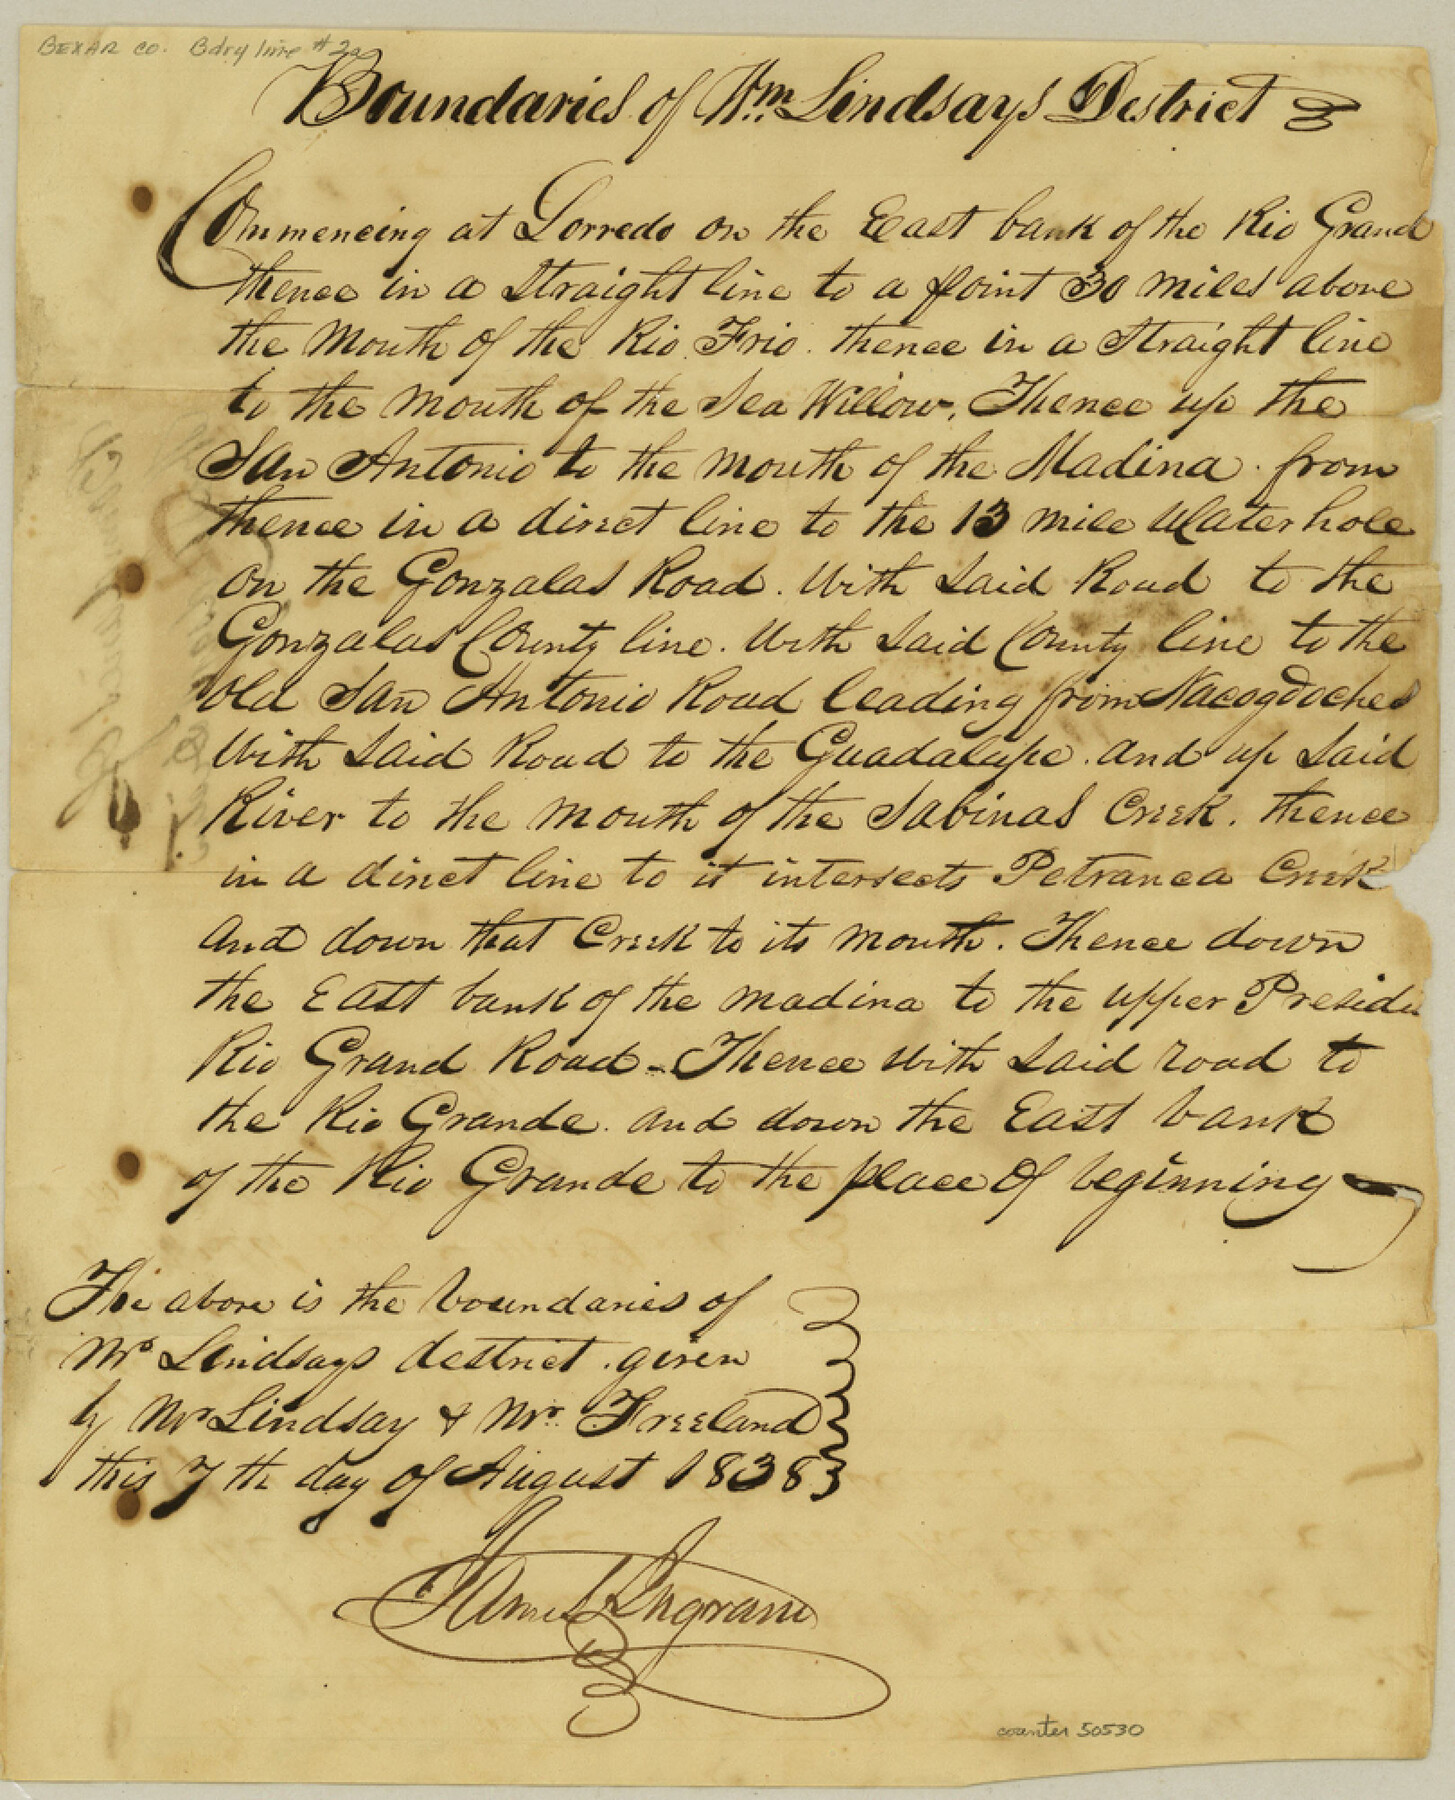 BEXAR CO. Bdry line #2a
Boundaries of Wm. Lindsays District
Commencing at Lorredo on the East bank of the Rio Grand
thence in a Straight line to a point 30 miles above
the Mouth of the Rio Frio. thence in a Straight line
to the mouth of the Sea Willow. Thence up the
San Antonio to the mouth of the Madina. from
thence in a direct line to the 13 mile Water hole
on the Gonzalas Road. With Said Road to the
Gonzalas County line. With Said County line to the
old San Antonio Road leading from Nacogdoches
With Said Road to the Guadalupe. and up Said
River to the mouth of the Sabinas Creek. thence
in a direct line to it intersects Petranca Creek
and down that Creek to its mouth. Thence down
the East bank of the madina to the upper Presidi
Rio Grand Road - Thence with Said road to
the Rio Grande. and down the East bank
of the Rio Grande to the place of beginning
The above is the boundaries of
Mr Lindsays destrict. given
by Mr Lindsay & Mr. Freeland
this 7th day of August 1838
James Ingram
counter 50530